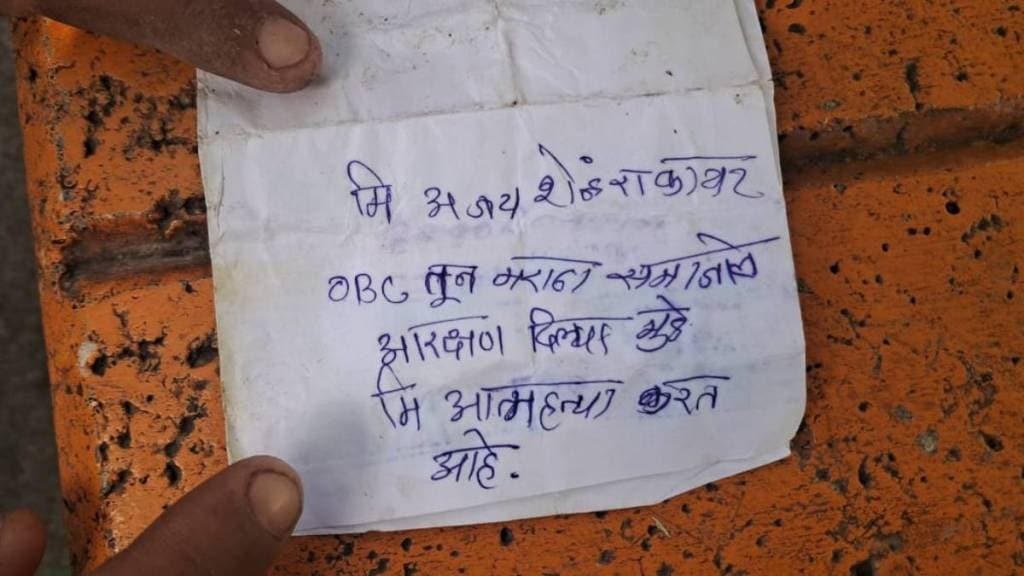 मि अजय
OBC तून मराठा समाजाले
आरक्षण दिल्या मुळे
मि आत्महत्या करत
आहे.